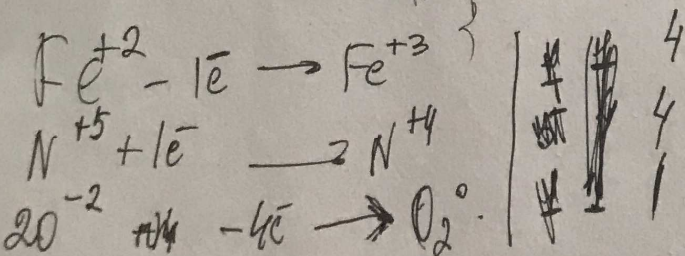 Fe⁺² - 1ē → Fe⁺³ } | 4
N⁺⁵ + 1ē → N⁺⁴ | 4
2O⁻² - 4ē → O₂⁰. | 1